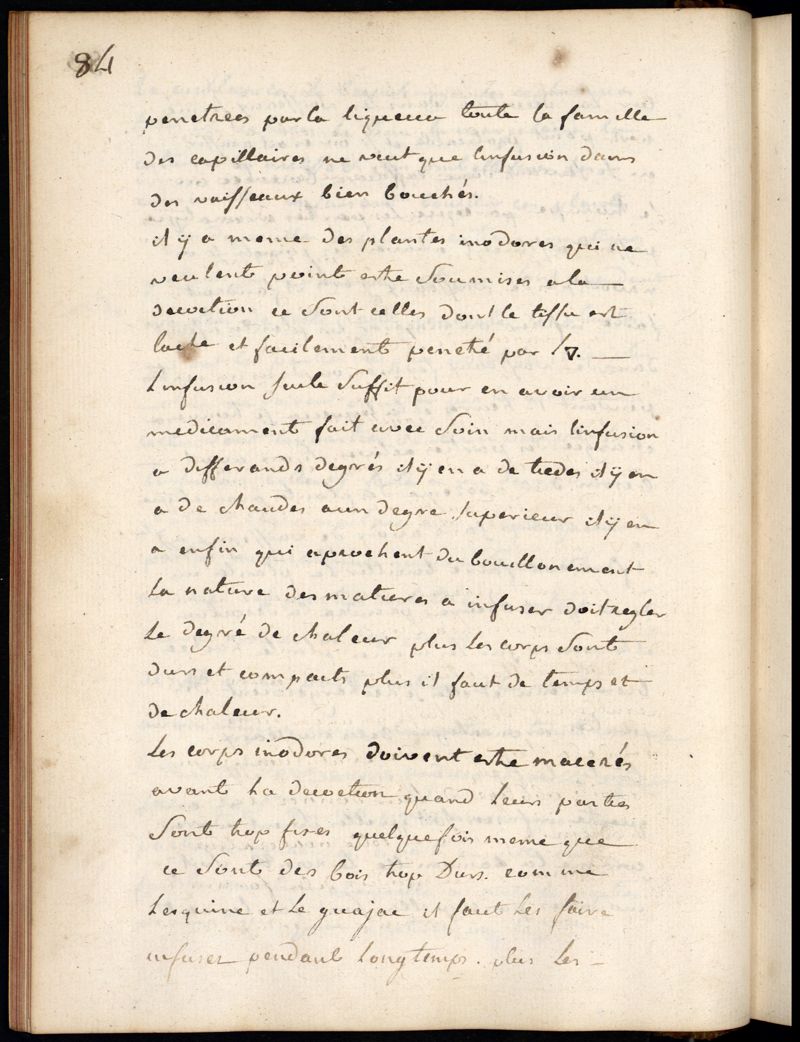 84
penetrees par la liqueur toute la famille
des capillaires ne veut que linfusion dans
des vaisseaux bien bouchés.
il y a meme des plantes inodores qui ne
veulent point estre Soumises a la
decoction ce Sont celles dont le tissu est
lache et facilement penetré par l'🜄.
Linfusion seule Suffit pour en avoir un
medicament fait avec Soin mais linfusion
a differands degrés il y en a de tiedes il y en
a de chaudes a un degre superieur il y en
a enfin qui aprochent du bouillonement
La nature des matieres a infuser doit regler
Le degré de chaleur plus Les corps Sont
durs et compacts plus il faut de temps et
de chaleur.
Les corps inodores doivent estre macerés
avant La decoction quand Leurs parties
Sont trop fixes quelquefois meme que
ce Sont des bois trop Durs. comme
Lesquine et Le guajac il faut Les faire
infuser pendant Longtemps. plus Les